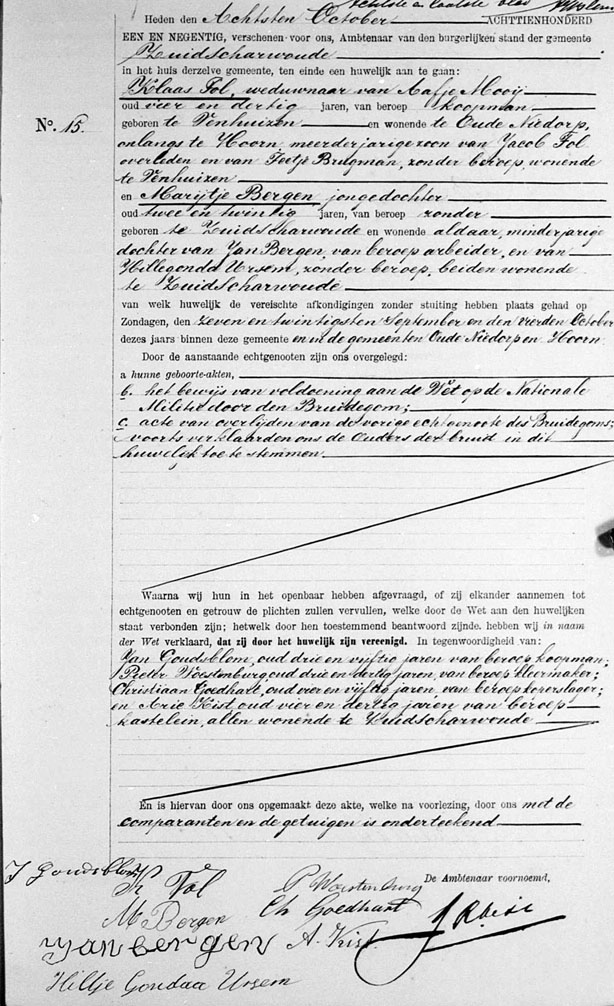 Achtste en laatste blad
Heden den Achtsten October ACHTTIENHONDERD
EEN EN NEGENTIG, verschenen voor ons, Ambtenaar van den burgerlijken stand der gemeente
Zuidscharwoude
in het huis derzelve gemeente, ten einde een huwelijk aan te gaan:
Klaas Tol, weduwnaar van Aafje Mooij
oud vier en dertig jaren, van beroep koopman
No. 15.
geboren te Venhuizen en wonende te Oude Niedorp,
onlangs te Hoorn, meerderjarige zoon van Jacob Tol
overleden en van Feetje Brugman, zonder beroep, wonende
te Venhuizen
en Marijtje Bergen, jongedochter
oud twee en twintig jaren, van beroep zonder
geboren te Zuidscharwoude en wonende aldaar, minderjarige
dochter van Jan Bergen, van beroep arbeider, en van
Hillegonda Ursem, zonder beroep, beiden wonende
te Zuidscharwoude
van welk huwelijk de vereischte afkondigingen zonder stuiting hebben plaats gehad op
Zondagen, den zeven en twintigsten September en den vierden October
dezes jaars binnen deze gemeente en in de gemeenten Oude Niedorp en Hoorn.
Door de aanstaande echtgenooten zijn ons overgelegd:
a hunne geboorte-akten,
b. het bewijs van voldoening aan de Wet op de Nationale
Militie door den Bruidegom;
c. acte van overlijden van de vorige echtgenoote des Bruidegoms;
voorts verklaarden ons de Ouders der bruid in dit
huwelijk toe te stemmen.
Waarna wij hun in het openbaar hebben afgevraagd, of zij elkander aannemen tot
echtgenooten en getrouw de plichten zullen vervullen, welke door de Wet aan den huwelijken
staat verbonden zijn; hetwelk door hen toestemmend beantwoord zijnde, hebben wij in naam
der Wet verklaard, dat zij door het huwelijk zijn vereenigd. In tegenwoordigheid van:
Jan Goudsblom, oud drie en vijftig jaren van beroep koopman;
Pieter Woestenburg oud drie en dertig jaren, van beroep kleermaker;
Christiaan Goedhart, oud vier en vijftig jaren, van beroep koperslager;
en Arie Kist oud vier en dertig jaren van beroep
kastelein, allen wonende te Zuidscharwoude
En is hiervan door ons opgemaakt deze akte, welke na voorlezing, door ons met de
comparanten en de getuigen is onderteekend
De Ambtenaar voornoemd,
J Goudsblom
K Tol
P Woestenburg
M Bergen
Ch Goedhart
Jan bergen
A. Kist
Hiltje Gondaa Ursem